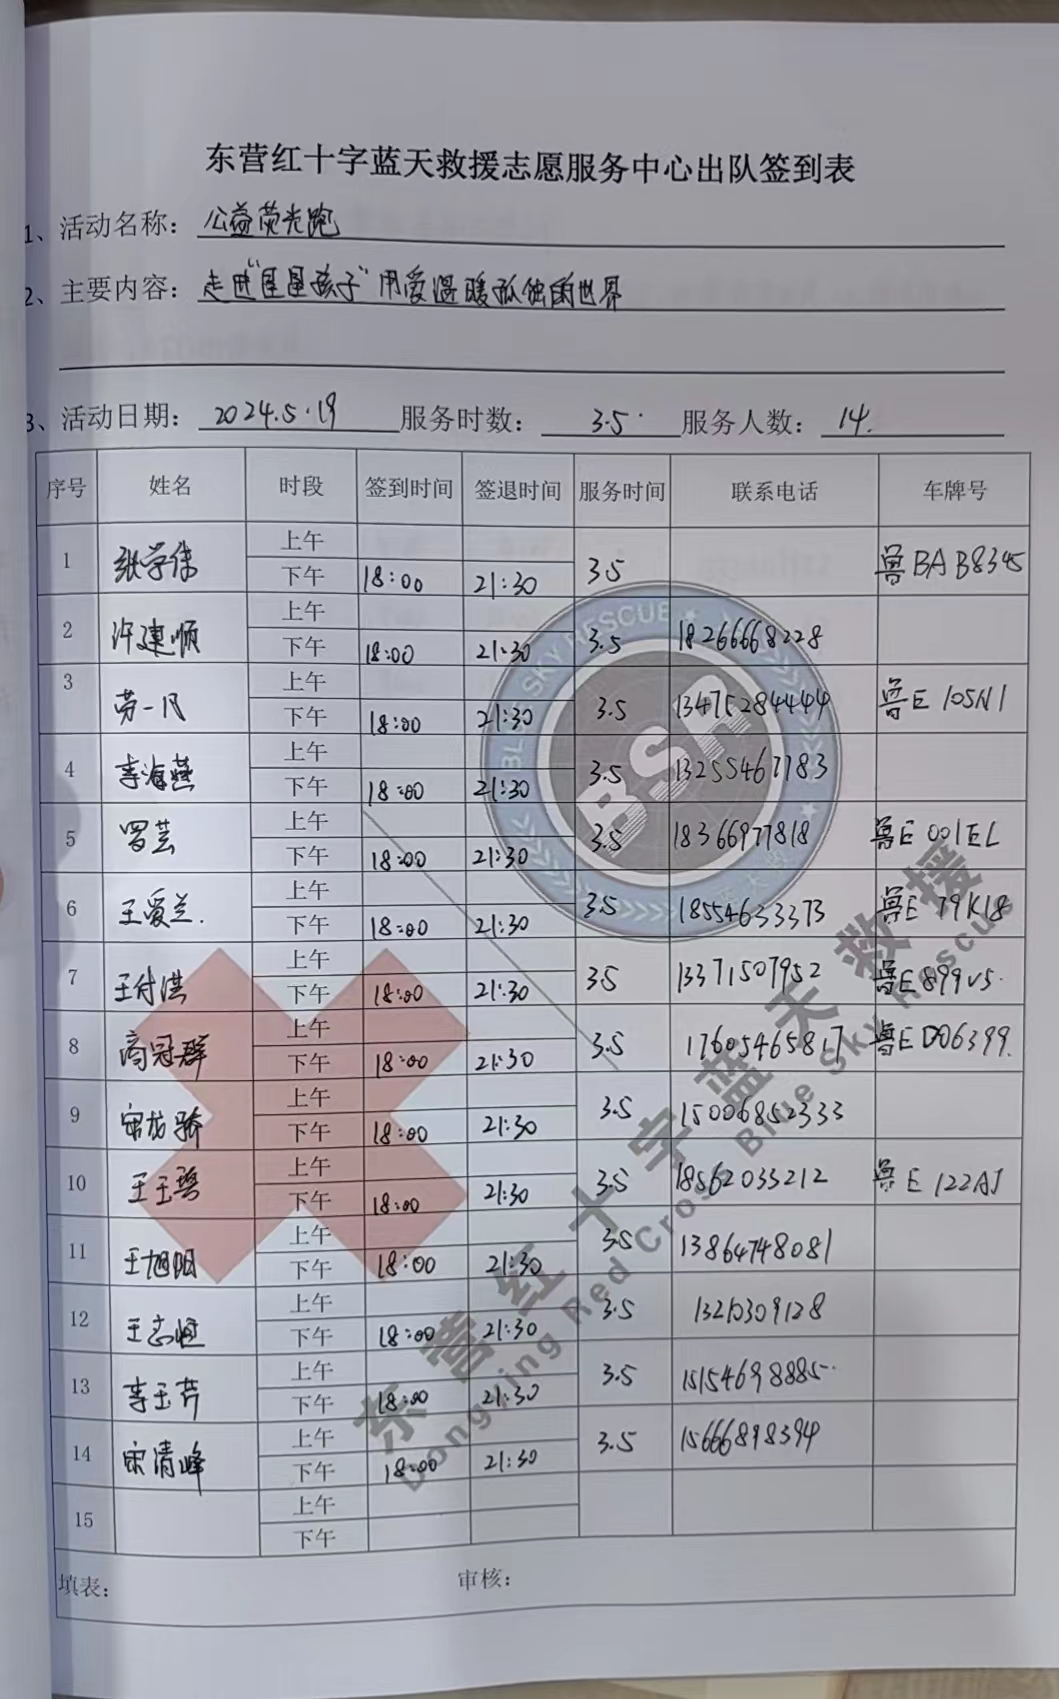 东营红十字蓝天救援志愿服务中心出队签到表
1、活动名称：公益荧光跑
2、主要内容：走进"星星孩子"用爱温暖孤独的世界
3、活动日期：2024.5.19 服务时数：3.5 服务人数：14.
序号 姓名 时段 签到时间 签退时间 服务时间 联系电话 车牌号
1 张学伟 上午 3.5 鲁BAB8345
下午 18:00 21:30
2 许建顺 上午 3.5 18266668228
下午 18:00 21:30
3 劳一凡 上午 3.5 134752844444 鲁E 105N1
下午 18:00 21:30
4 李海燕 上午 3.5 13255467183
下午 18:00 21:30
5 罗芸 上午 3.5 18366977818 鲁E 001EL
下午 18:00 21:30
6 王爱兰. 上午 3.5 18554633373 鲁E 79K18
下午 18:00 21:30
7 王付洪 上午 3.5 13371507952 鲁E899V5
下午 18:00 21:30
8 商冠群 上午 3.5 17605465817 鲁ED06399.
下午 18:00 21:30
9 宋龙骄 上午 3.5 15006852333
下午 18:00 21:30
10 王玉碧 上午 3.5 18562033212 鲁E 122AJ
下午 18:00 21:30
11 王旭阳 上午 3.5 13864748081
下午 18:00 21:30
12 王志恒 上午 3.5
下午 18:00 21:30
13 李玉芹 上午 3.5 15154698885
下午 18:00 21:30
14 宋清峰 上午 3.5 15666898394
下午 18:00 21:30
15 上午
下午
填表： 审核：
BLUE SKY RESCUE
BSR
东营红十字蓝天救援
Dongying Red Cross Blue Sky Rescue